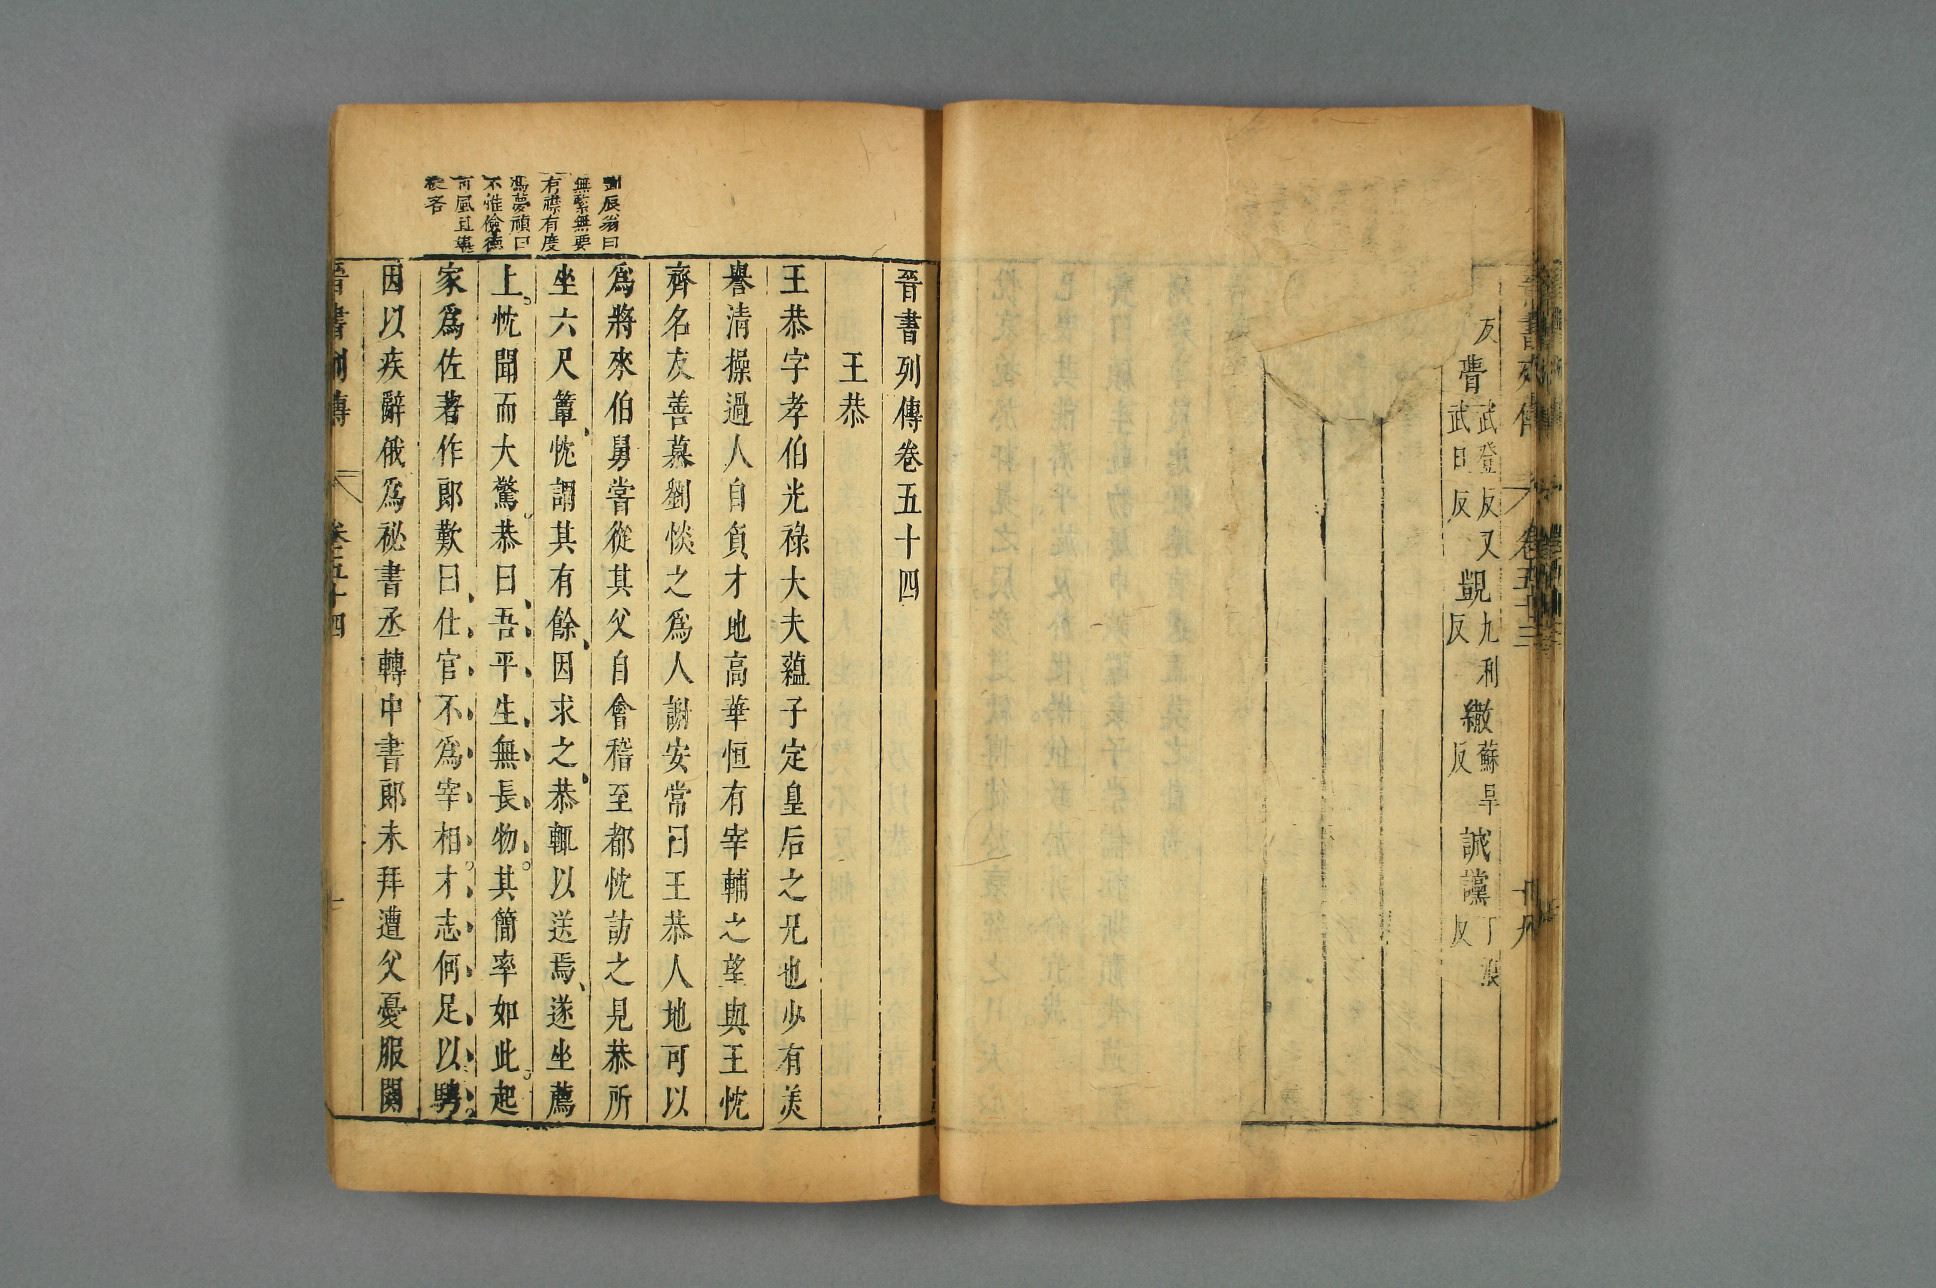 反
瞢武登反又
武旦反
覬九利
反
繖蘇旱
反
讜丁浪
反
晉書列傳
卷五十三
十九
晉書列傳卷五十四
王恭
王恭字孝伯光祿大夫蘊子定皇后之兄也少有美
譽清操過人自負才地高華恒有宰輔之望與王忱
齊名友善慕劉惔之爲人謝安常曰王恭人地可以
爲將來伯舅嘗從其父自會稽至都忱訪之見恭所
坐六尺簟忱謂其有餘因求之恭輒以送焉遂坐薦
上忱聞而大驚恭曰吾平生無長物其簡率如此起
家爲佐著作郎歎曰仕宦不爲宰相才志何足以騁
因以疾辭俄爲祕書丞轉中書郎未拜遭父憂服闋
劉辰翁曰
無縈無要
有襟有度
馮夢禎曰
不惟儉德
可風且
吝
晉書列傳
卷五十四
一